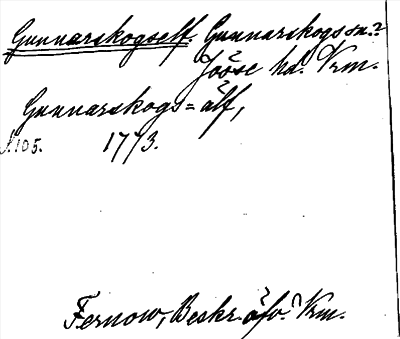 Gunnarskogself. Gunnarskogs sn.?
Jösse hd. Vrm.
Gunnarskogs=älf,
S. 105. 1773.
Fernow, Beskr. öfv. Vrm.